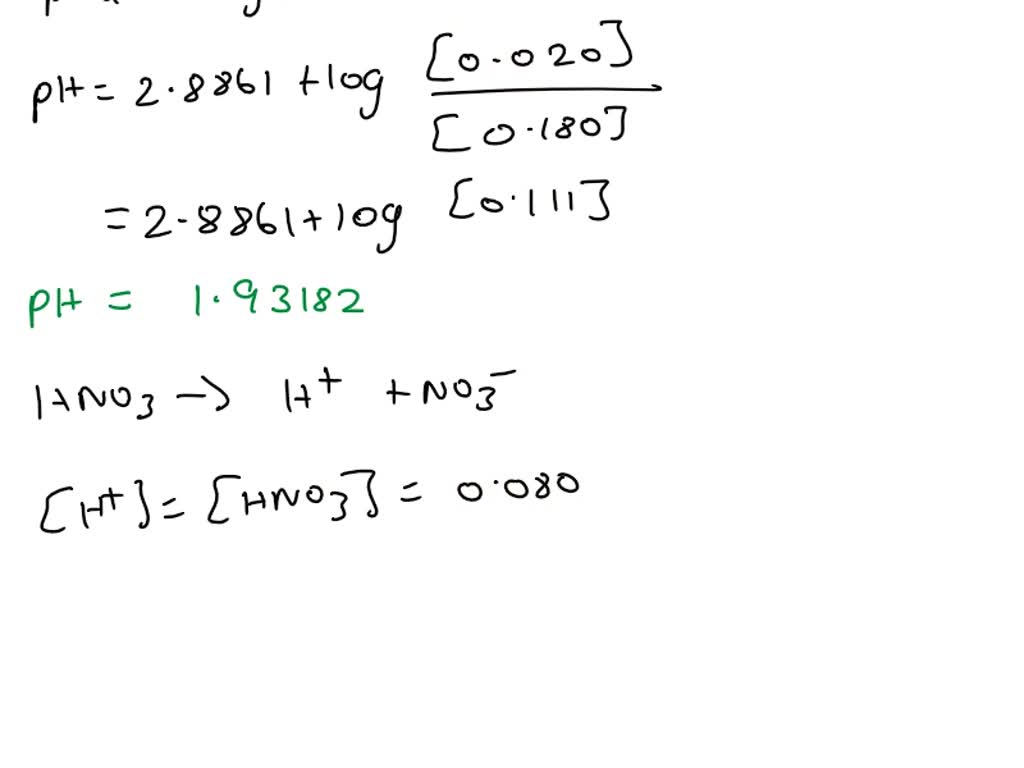 pH = 2.8861 + log [0.020] / [0.180]
= 2.8861 + log [0.111]
pH = 1.93182
HNO3 → H+ + NO3-
[H+] = [HNO3] = 0.080